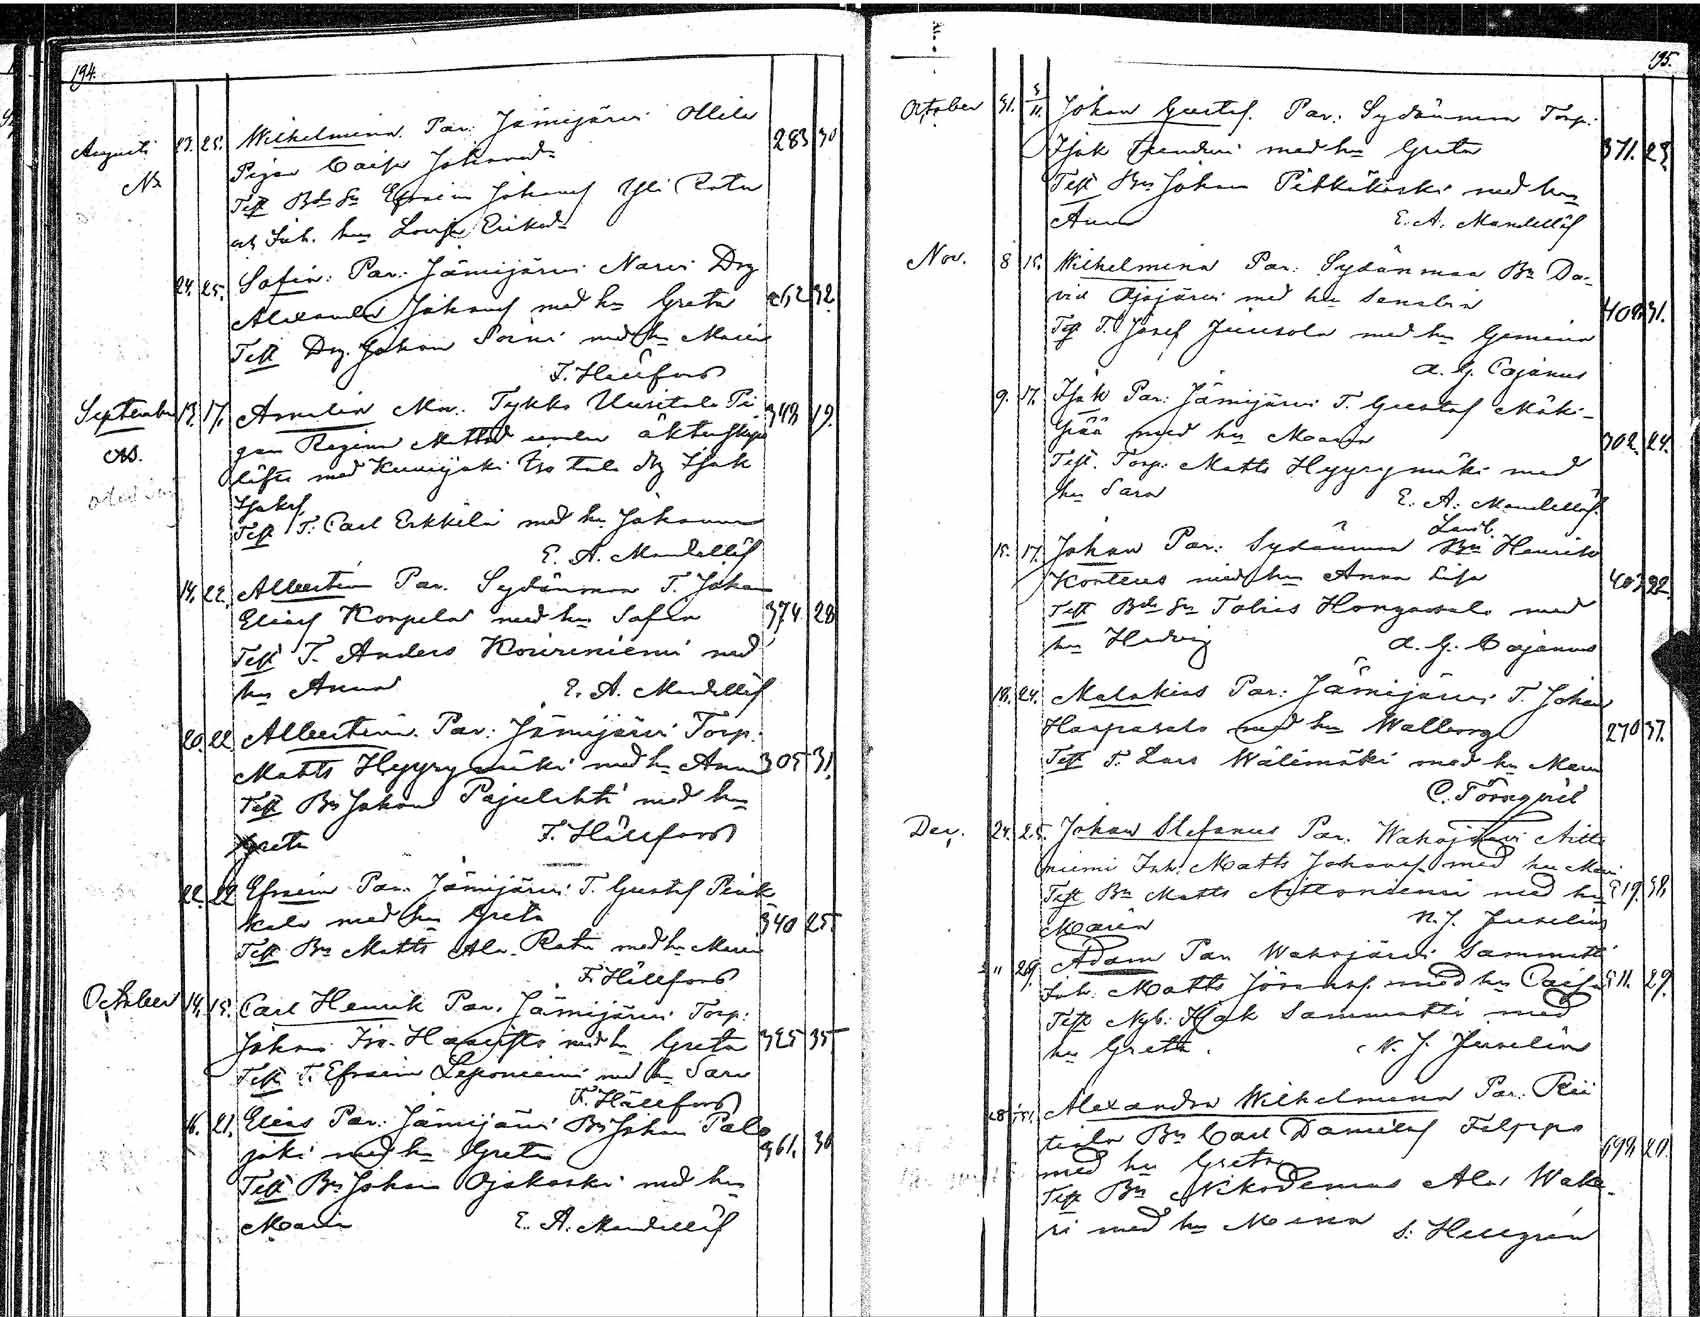 194.
Augusti 23. 25. Wilhelmina. Par: Jämijärvi Ollila
Pigan Caisa Johansd:
283 30
No
Test Bd: Sn Efraim Johansf Yli Rata
och Inh. hu Lovisa Eriksd:
24. 25. Sofia: Par: Jämijärvi Narvi Drg
Alexander Johansf med hu Greta 262 32.
Test Drg. Johan Soini med hu Maria
F. Hällfors
September 13. 17. Amalia Mn. Tykks Uusitalo Pi
gan Regina Mattsd under äktenskaps
343 19.
löfte med Kuninjoki Iso talo drg Isak
Isaksf
Test T. Carl Erkkilä med hu Johanna
E. A. Mandellöf
14. 22. Albertin Par. Sydänmaa T. Johan
Eliasf Korpela med hu Sofia 374 28
Test T. Anders Koivuniemi med
hu Anna E. A. Mandellöf
20. 22 Albertina. Par: Jämijärvi Torp.
Matts Hyyrymäki med hu Anna 305 31.
Test Bn Johan Pajulahti med hu
Greta F. Hällfors
22. 22 Efraim Par: Jämijärvi T. Gustaf Penk
kala med hu Greta 340 25
Test Bn Matts Ala-Rata med hu Maria
F. Hällfors
October 14. 15. Carl Henrik Par. Jämijärvi Torp:
Johan Iso-Hannista med hu Greta 325 35
Test T. Efraim Leponiemi med hu Sara
F. Hällfors
16. 21. Elias Par: Jämijärvi Bn Johan Palo
joki med hu Greta 361. 30
Test Bn Johan Ojakoski med hu
Maria E. A. Mandellöf
195.
October 31. 5/11. Johan Gustaf. Par: Sydänmaa Torp:
Isak med hu Greta 371. 23.
Test Bn Johan Pitkäkoski med hu
Anna E. A. Mandellöf
Nov. 8 15. Wilhelmina Par: Sydänmaa Bn Da-
vid Ojajärvi med hu Senabia 408. 31.
Test T. Josef Juusola med hu Gemina
A. G. Cajanus
9. 17. Isak Par: Jämijärvi T. Gustaf Mäki-
pää med hu Maria 302. 24.
Test. Torp: Matts Hyyrymäki med
hu Sara E. A. Mandellöf.
Landb.
15. 17. Johan Par: Sydänmaa Bn Henrik
Konteus med hu Anna Lisa 403 22.
Test Bd Sn Tobias Hongasalo med
hu Hedvig A. G. Cajanus
18. 24. Malakias Par: Jämijärvi T. Johan
Haapasalo med hu Walborg 270 37.
Test T. Lars Wälimäki med hu Maria
C. Törnqvist
Dec. 24. 25. Johan Stefanus Par. Wahojärvi Aitto
niemi Inh: Matts Johansf. med hu Maria
Test Bn Matts Aittoniemi med hu 519. 38
Maria N. J. Juselius
" 29. Adam Par Wahojärvi Sammatti
Inh. Matts Jöransf. med hu Caisa 511. 29.
Test Nyb: Isak Sammatti med
hu Greta. N. J. Juselius
28 31. Alexandra Wilhelmina Par: Rii
tiala Bn Carl Danielsf Filppo
med hu Greta 598. 20.
Test Bn Nikodemus Ala-Wahe-
ri med hu Mina S: Hellgren